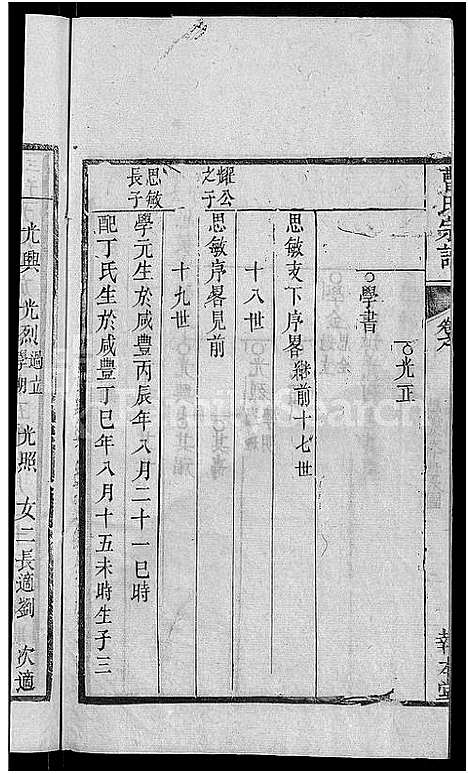 曹氏宗譜
卷
報本堂
光正
學書
思敏支下序畧
前十七世
十八世
耀公之子
思敏序畧見前
十九世
思敏長子
學元生於咸豐丙辰年八月二十一巳時
配丁氏生於咸豐丁巳年八月十五未時生子三
光興 光烈過立學朝 光照 女二長適劉 次適